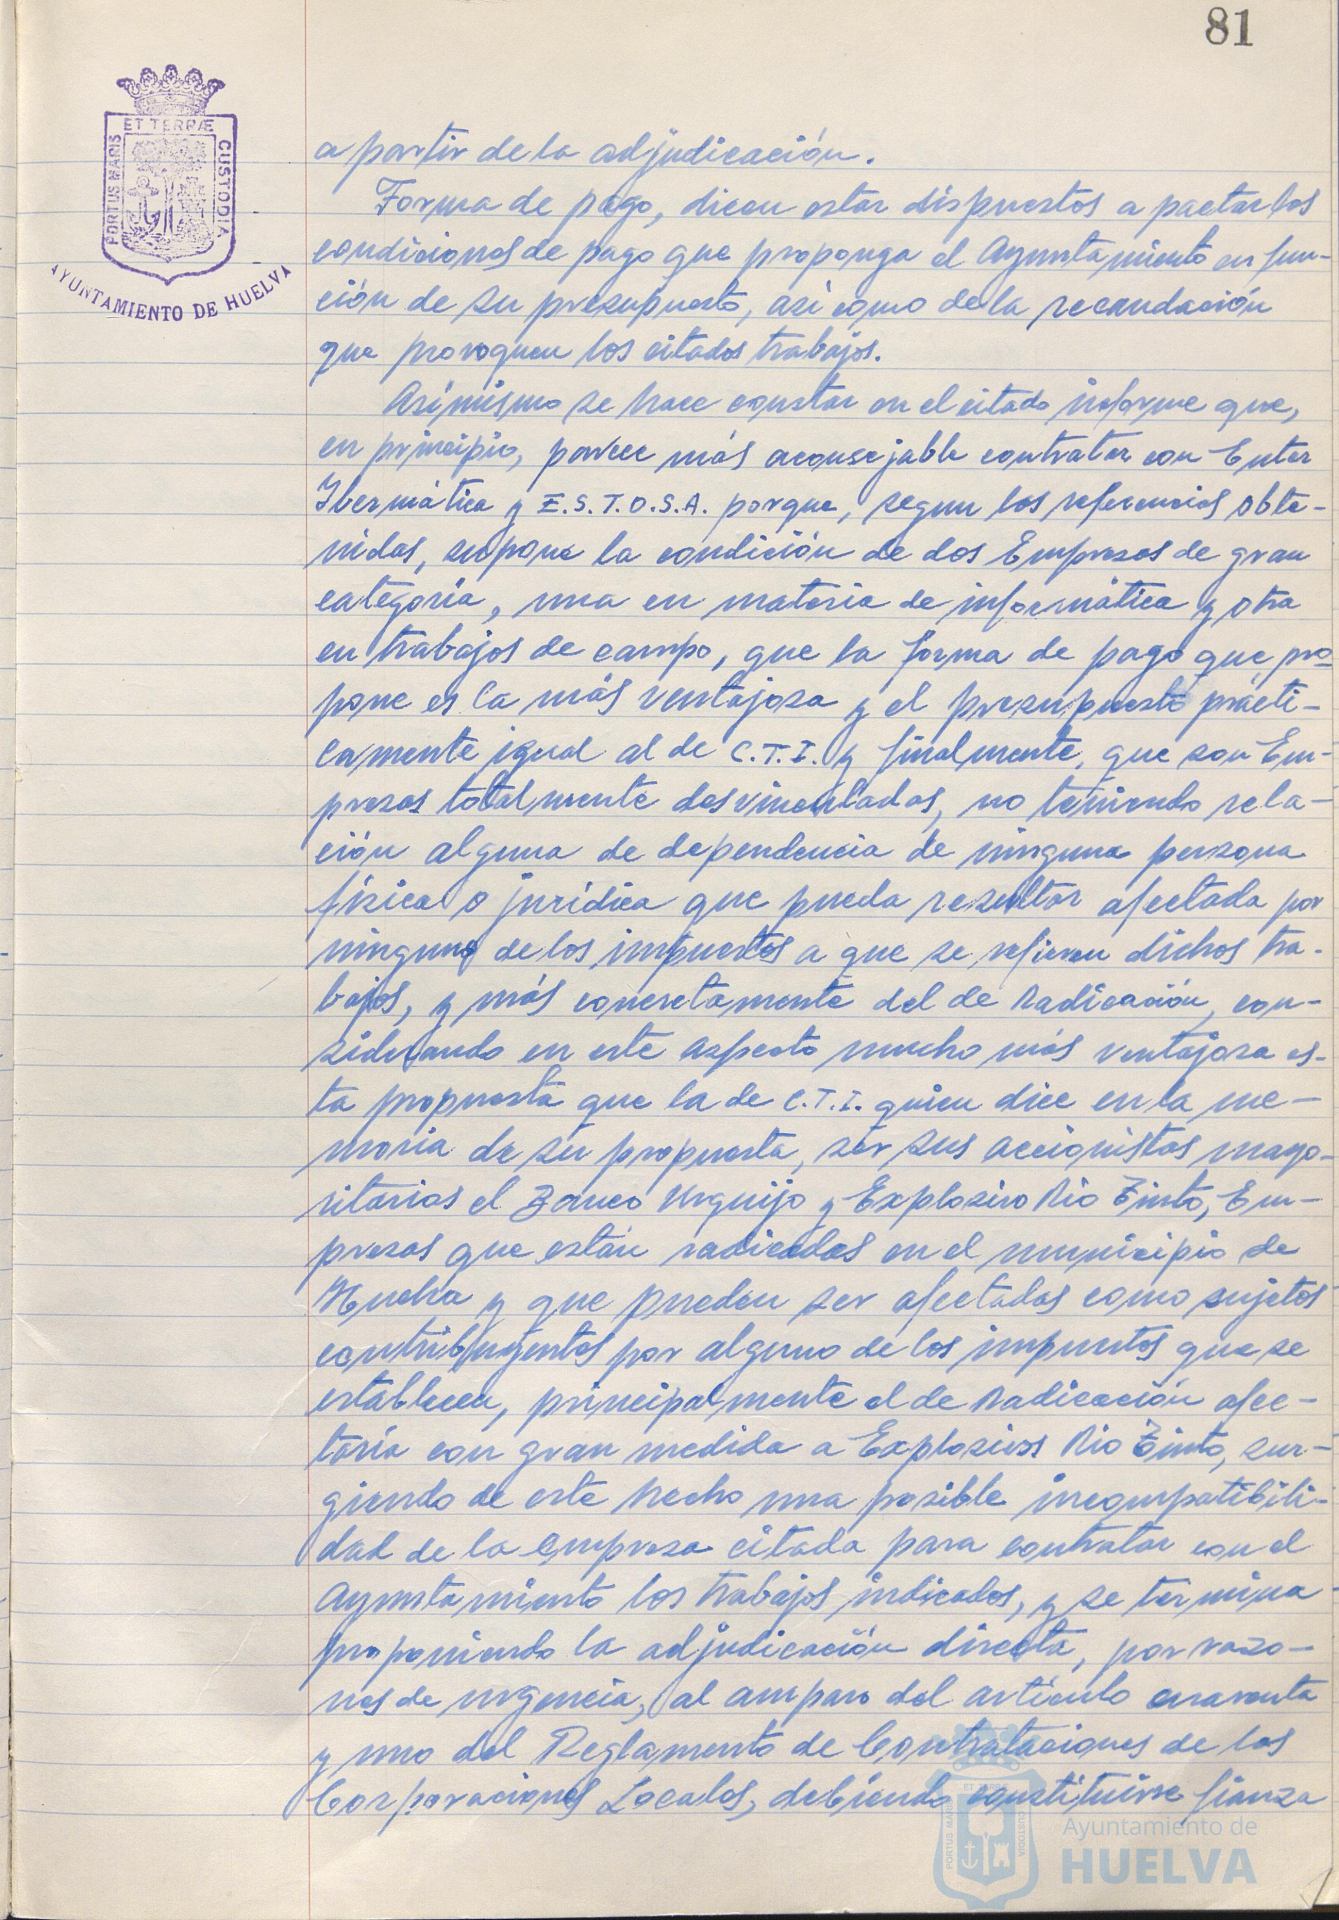 81
ET TERRÆ
PORTUS MARIS
CUSTODIA
AYUNTAMIENTO DE HUELVA
a partir de la adjudicación.
Forma de pago, dicen estar dispuestos a pactar las
condiciones de pago que proponga el Ayuntamiento en fun-
ción de su presupuesto, así como de la recaudación
que provoquen los citados trabajos.
Asimismo se hace constar en el citado informe que,
en principio, parece más aconsejable contratar con Enter
Ibermática y E.S.T.O.S.A. porque, segun las referencias obte-
nidas, supone la condición de dos Empresas de gran
categoría, una en materia de informática y otra
en trabajos de campo, que la forma de pago que pro-
pone es la más ventajosa y el presupuesto prácti-
camente igual al de C.T.I. y finalmente, que son Em-
presas totalmente desvinculadas, no teniendo rela-
ción alguna de dependencia de ninguna persona
física o jurídica que pueda resultar afectada por
ninguno de los impuestos a que se refieren dichos tra-
bajos, y más concretamente del de Radicación, con-
siderando en este aspecto mucho más ventajosa es-
ta propuesta que la de C.T.I. quien dice en la me-
moria de su propuesta, ser sus accionistas mayo-
ritarios el Banco Urquijo y Explosivo Rio Tinto, Em-
presas que están radicadas en el municipio de
Huelva y que pueden ser afectadas como sujetos
contribuyentes por alguno de los impuestos que se
establecen, principalmente el de Radicación afec-
taría con gran medida a Explosivos Rio Tinto, sur-
giendo de este hecho una posible incompatibili-
dad de la empresa citada para contratar con el
Ayuntamiento los trabajos indicados, y se termina
proponiendo la adjudicación directa, por razo-
nes de urgencia, al amparo del artículo cuarenta
y uno del Reglamento de Contrataciones de las
Corporaciones Locales, debiendo constituirse fianza
ET TERRÆ
PORTUS MARIS
CUSTODIA
Ayuntamiento de
HUELVA